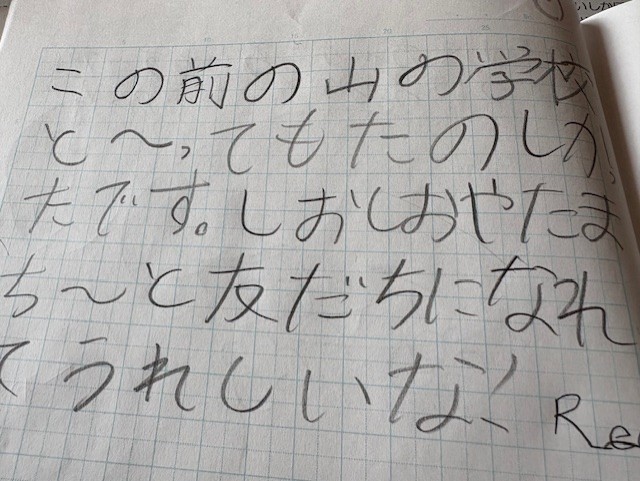 この前の山の学校
と〜ってもたのしかっ
たです。しおしおやたま
ち〜と友だちになれ
てうれしいな!
Re